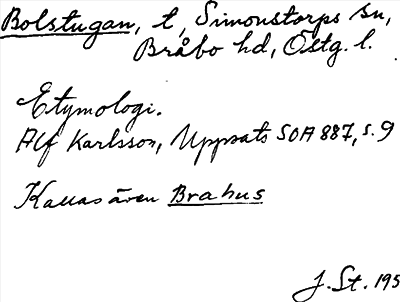 Bolstugan, t, Simonstorps sn,
Bråbo hd, Östg. l.
Etymologi.
Alf Karlsson, Uppsats SOA 887, s. 9
Kallas även Brahus
J. St. 195